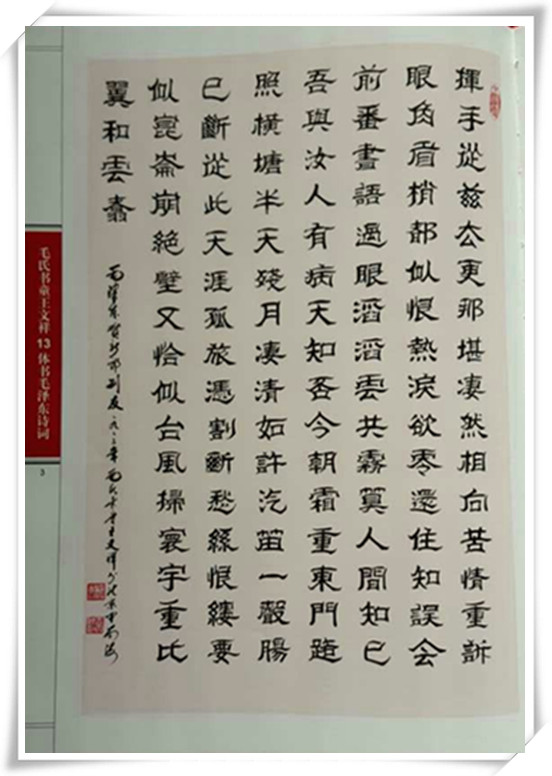 揮手從兹去更那堪凄然相向苦情重訴
眼角眉梢都似恨熱淚欲零還住知誤會
前番書語過眼滔滔雲共霧算人間知己
吾與汝人有病天知否今朝霜重東門路
照横塘半天殘月凄清如許汽笛一聲腸
已斷從此天涯孤旅憑割斷愁絲恨縷要
似崑崙崩絕壁又恰似台風掃寰宇重比
翼和雲翥
毛澤東賀新郎别友一九二三年毛氏書童王文祥書於北京中南海
毛氏书童王文祥13体书毛泽东诗词
3